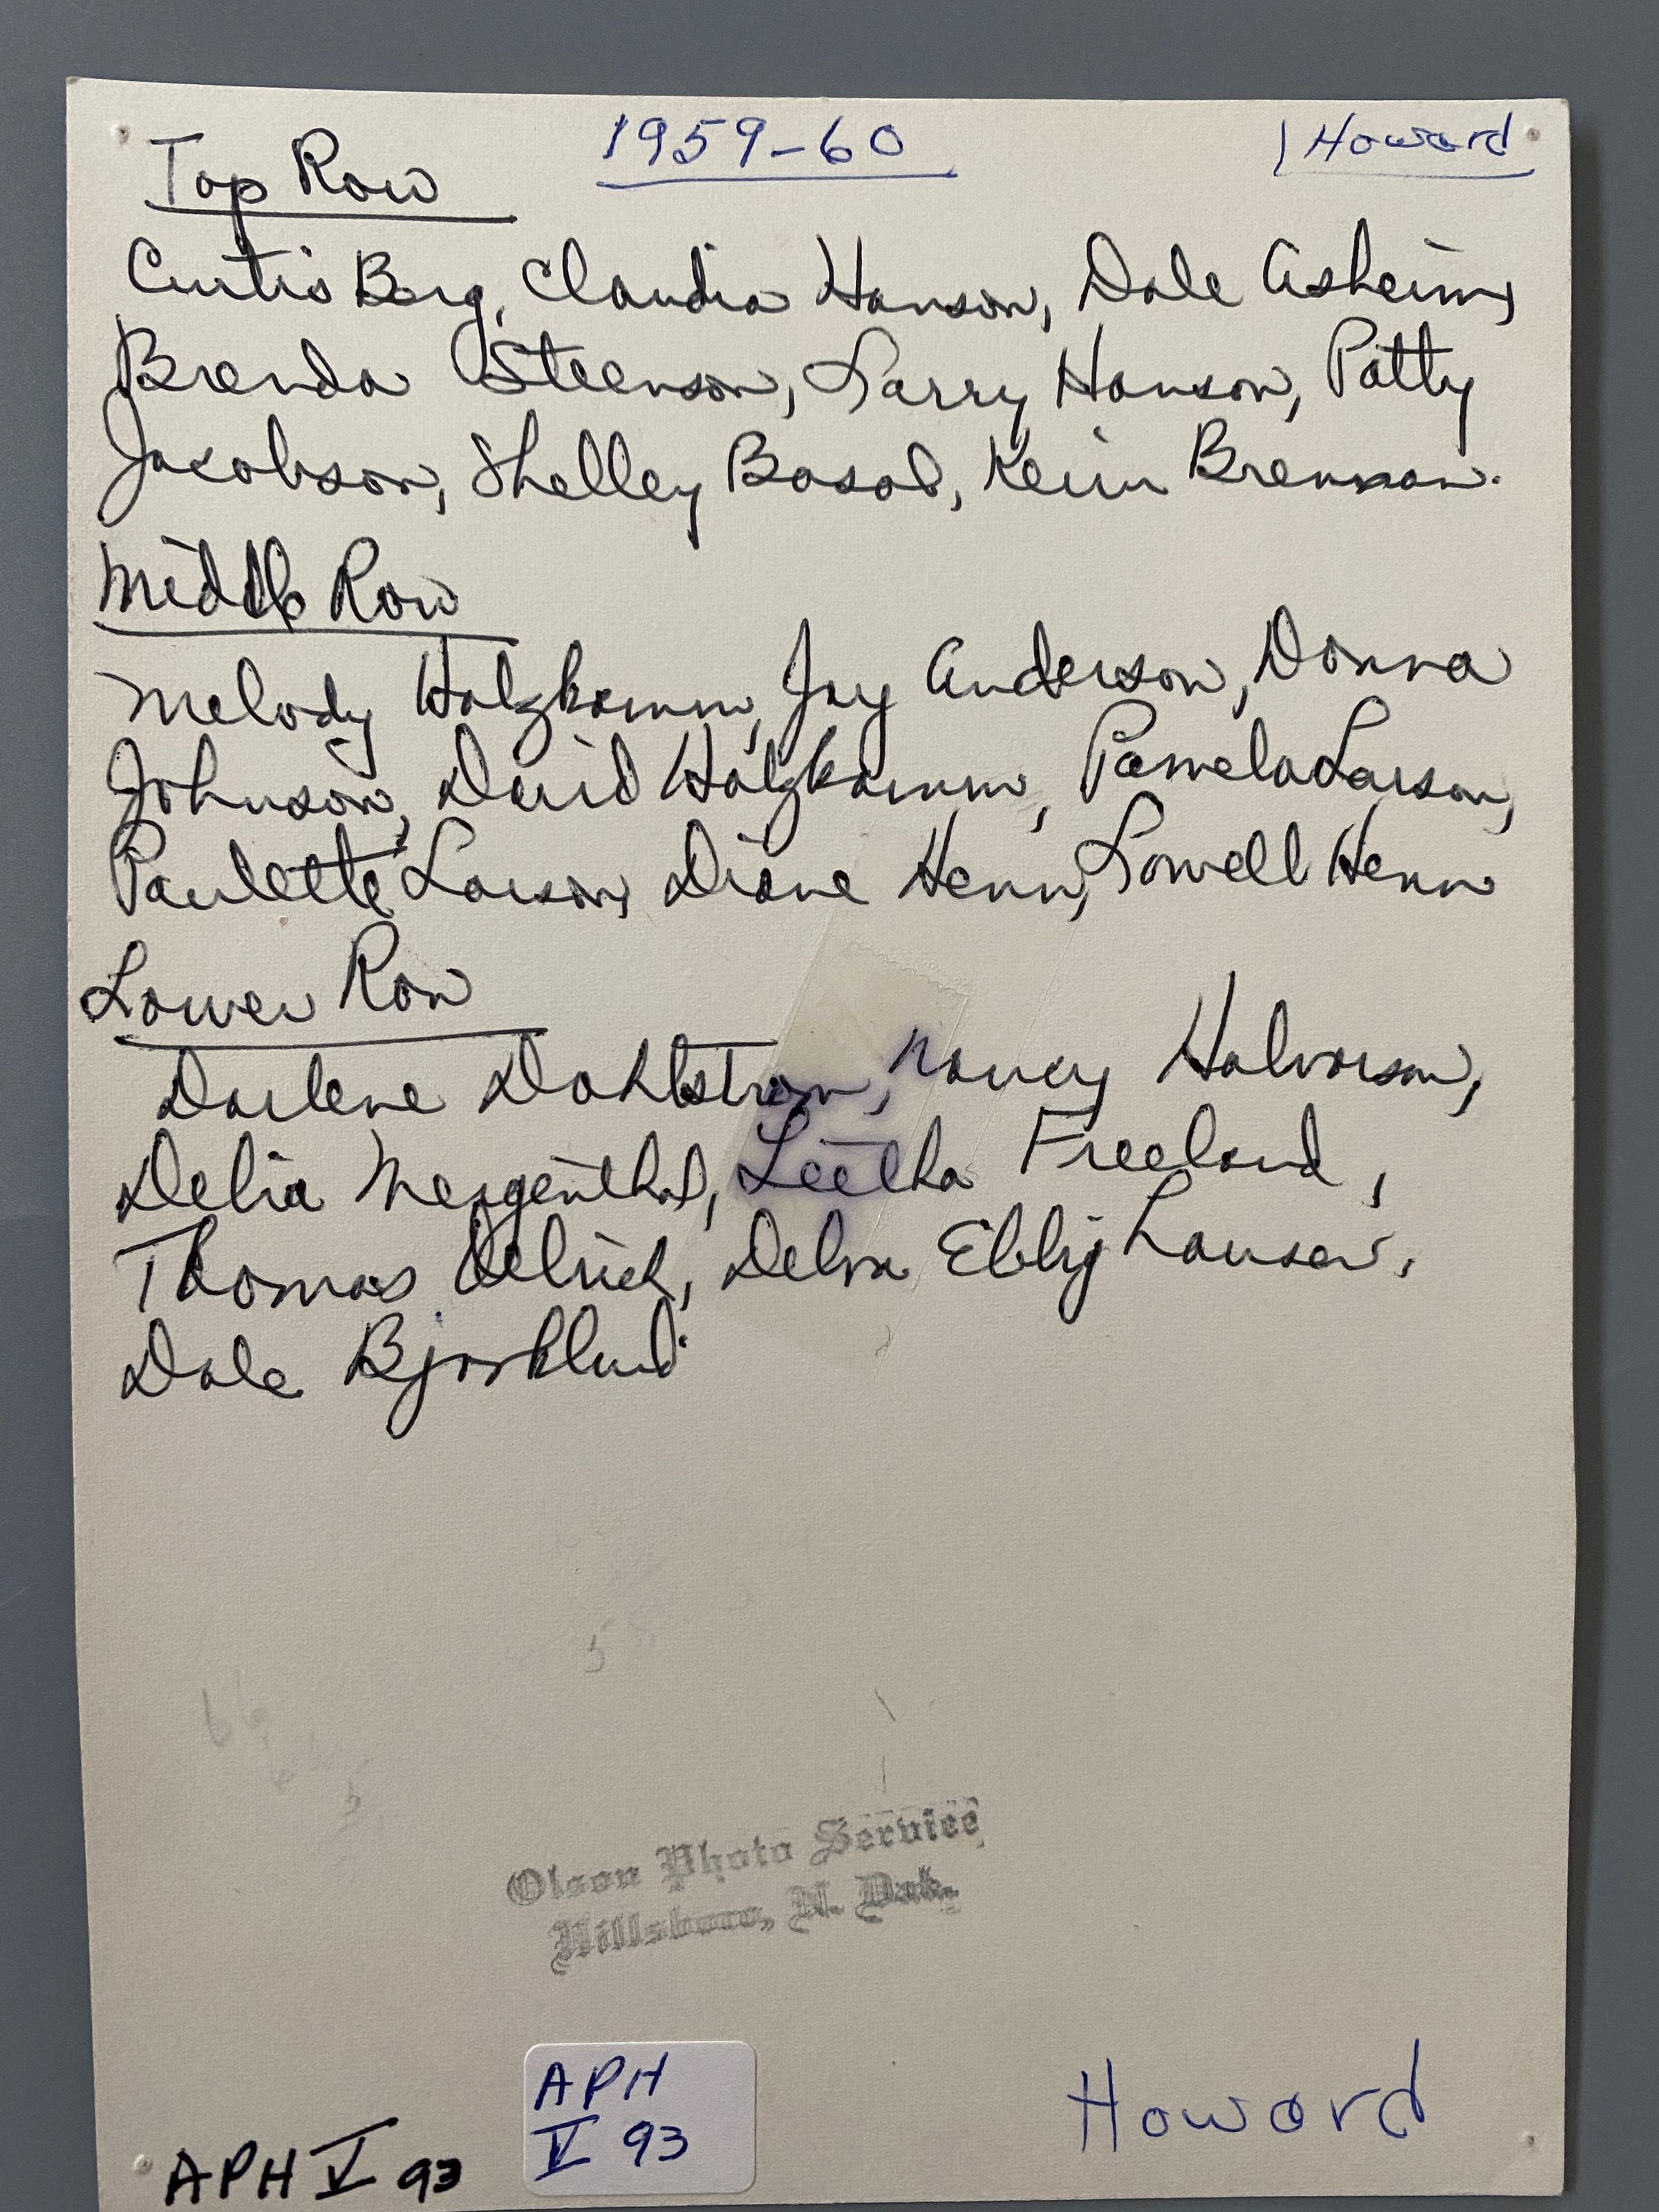 1959-60
Howard
Top Row
Curtis Berg, Claudia Hanson, Dale Asheim,
Brenda Steenson, Larry Hanson, Patty
Jacobson, Shelley Basol, Kevin Brennan.
Middle Row
Melody Holzkamm, Jay Anderson, Donna
Johnson, David Holzkamm, Pamela Larson,
Paulette Larson, Diane Henn, Lowell Henn
Lower Row
Darlene Dahlstrom, Nancy Halvorson,
Delia Mergenthal, Leetha Freeland,
Thomas Delva Ebbighausen,
Dale Bjorklund
Olson Photo Service
Hillsboro, N. Dak.
APH
V 93
Howard
APH V 93